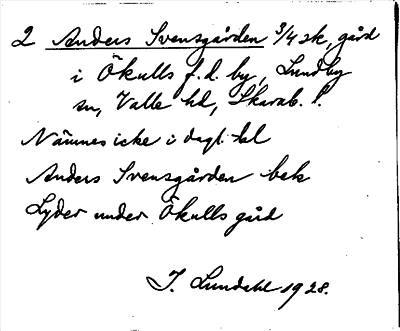 2 Anders Svensgården 3/4 sk, gård
i Ökulls f. d. by, Lundby
sn, Valle hd, Skarab. l.
Nämnes icke i dagl. tal
Anders Svensgården bek
Lyder under Ökulls gård
I. Lundahl 1928.